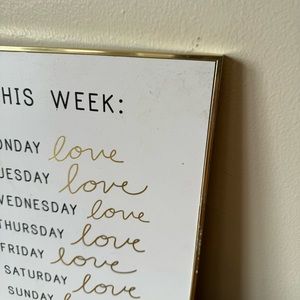 HIS WEEK:
ONDAY love
UESDAY love
WEDNESDAY love
THURSDAY love
FRIDAY love
SATURDAY love
SUNDAY love